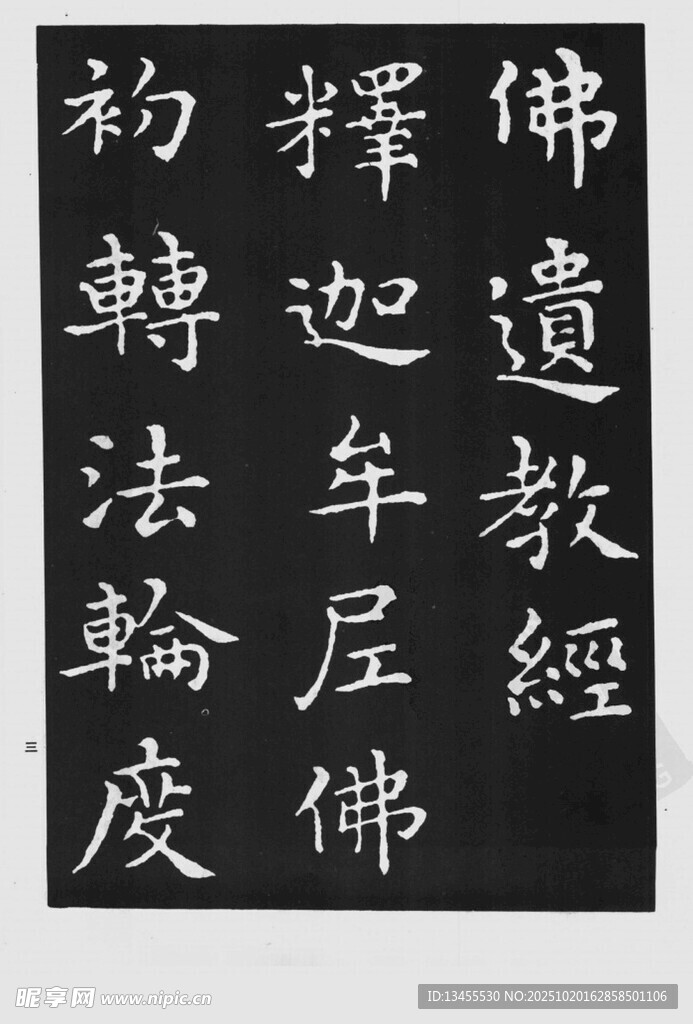 佛遺教經
釋迦牟尼佛
初轉法輪度
三
昵享网 www.nipic.cn
ID:13455530 NO:20251020162858501106